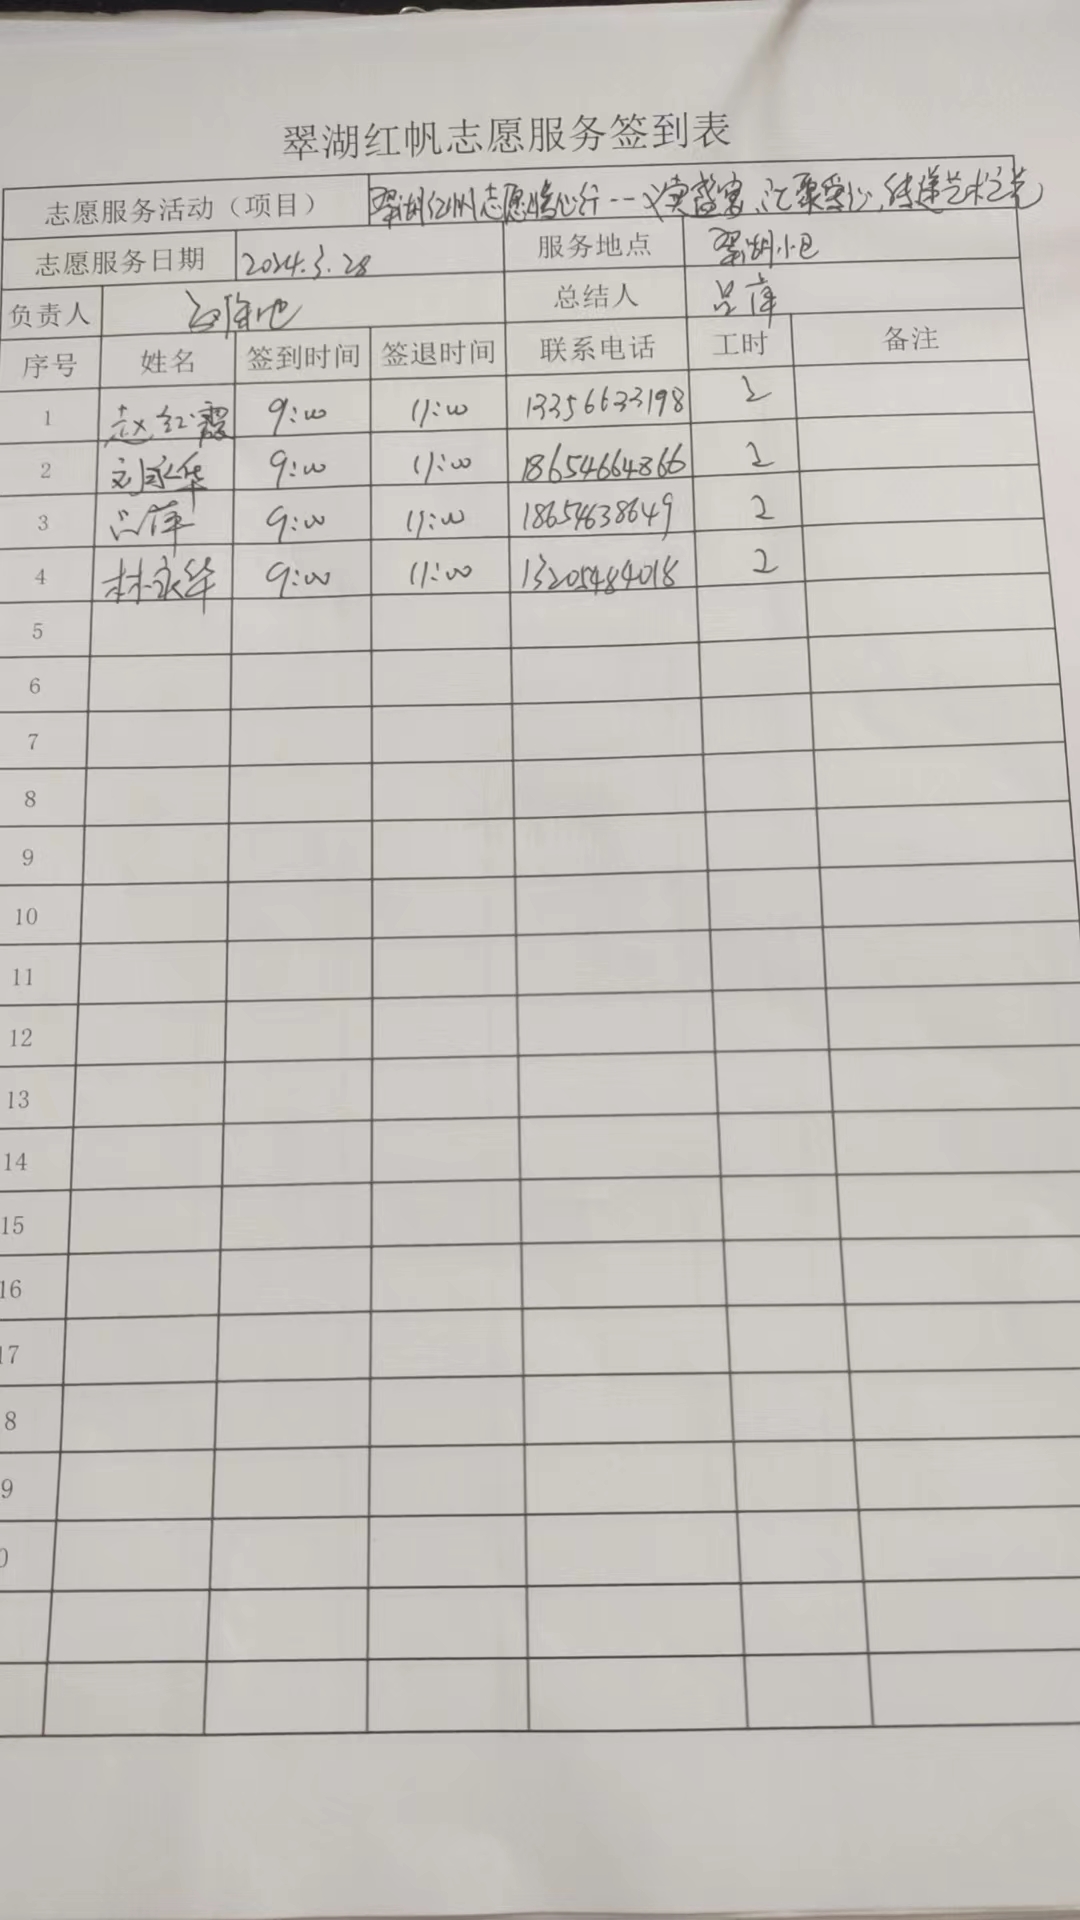 翠湖红帆志愿服务签到表
志愿服务活动（项目） 翠湖红帆志愿情心行--义卖 、汇聚爱心,传递艺术之光
志愿服务日期 2024.3.28 服务地点 翠湖小区
负责人 总结人 吕萍
序号 姓名 签到时间 签退时间 联系电话 工时 备注
1 赵红霞 9:00 11:00 13356633198 2
2 刘永华 9:00 11:00 18654664866 2
3 吕萍 9:00 11:00 18654638649 2
4 林永华 9:00 11:00 13205484018 2
5
6
7
8
9
10
11
12
13
14
15
16
17
8
9
0